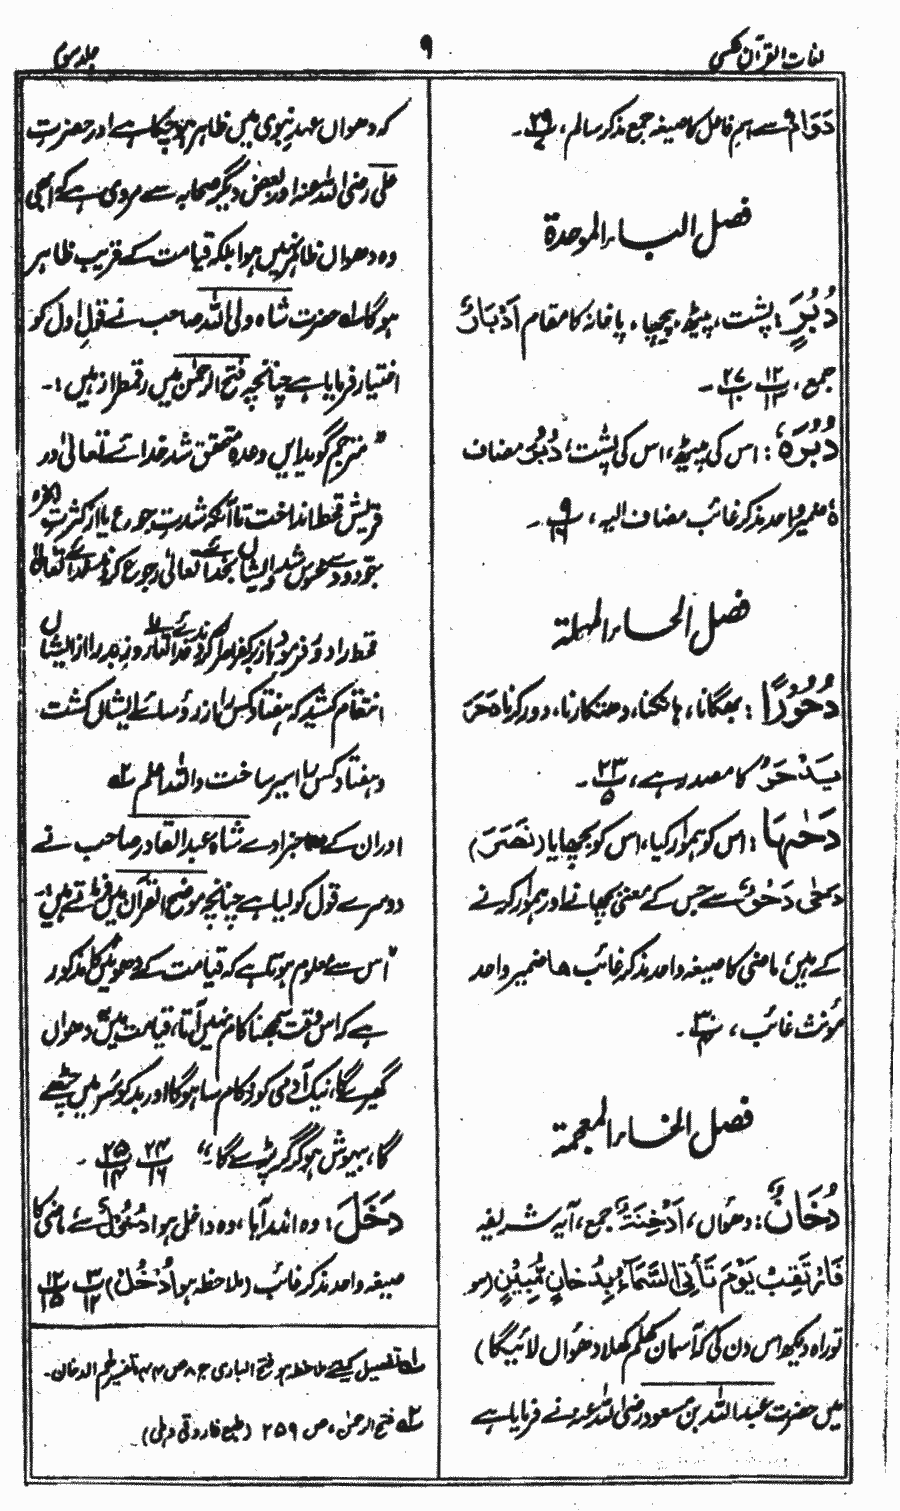 لغات القرآن مکسی
۹
جلد سوم
دَوَامٌ سے اسم فاعل کا صیغہ جمع مذکر سالم، ۔
فصل الباء الموحدة
دُبُرٍ: پشت، پیٹھ، پچھا، پاخانہ کا مقام اَدْبَارٌ
جمع، ۱۲ ۱۳ ۔ ۲۷ ۱۰ ۔
دُبُرَهٗ: اس کی پیٹھ، اس کی پشت، دُبُر مضاف
ہٗ ضمیر واحد مذکر غائب مضاف الیہ، ۹ ۱۶ ۔
فصل الحاء المہملة
دُحُوْرًا: بھگانا، ہانکنا، دھتکارنا، دور کرنا دَحَرَ
یَدْحَرُ کا مصدر ہے، ۲۳ ۵ ۔
دَحٰىهَا: اس کو ہموار کیا، اس کو بچھایا (نَصَرَ)
دَحٰی دَحْوٌ سے جس کے معنی بچھانے اور ہموار کرنے
کے ہیں، ماضی کا صیغہ واحد مذکر غائب ھا ضمیر واحد
مؤنث غائب، ۳۰ ۔
فصل الخاء المعجمة
دُخَانٌ: دھواں، اَدْخِنَةٌ جمع، آیہ شریفہ
فَارْتَقِبْ یَوْمَ تَأْتِی السَّمَآءُ بِدُخَانٍ مُّبِیْنٍ (سو
تو راہ دیکھ اس دن کی کہ آسمان کھلم کھلا دھواں لائیگا)
میں حضرت عبداللہ بن مسعود رضی اللہ عنہ نے فرمایا ہے
کہ دھواں عہدِ نبوی میں ظاہر ہوچکا ہے اور حضرت
علی رضی اللہ عنہ اور بعض دیگر صحابہ سے مروی ہے کہ ابھی
وہ دھواں ظاہر نہیں ہوا بلکہ قیامت کے قریب ظاہر
ہوگا لہ حضرت شاہ ولی اللہ صاحب نے قولِ اول کو
اختیار فرمایا ہے چنانچہ فتح الرحمٰن میں رقمطراز ہیں :۔
"مترجم گوید ایں وعدہ متحقق شد خدائے تعالیٰ در
قریش قحط انداخت تا آنکہ شدتِ جوع یا از کثرتِ
انتقام کشید کہ ہفتاد کس را از رؤسائے ایشاں کشت
و ہفتاد کس را اسیر ساخت واللہ اعلم ۲ہ
اور ان کے صاحبزادے شاہ عبدالقادر صاحب نے
دوسرے قول کو لیا ہے چنانچہ موضح القرآن میں فرماتے ہیں:۔
"اس سے معلوم ہوتا ہے کہ قیامت کے دھوئیں کا مذکور
ہے کہ اس وقت سمجھنا کام نہیں آتا، قیامت میں دھواں
گھیرے گا، نیک آدمی کو زکام سا ہوگا اور بد کو سر میں چڑھے
گا، بیہوش ہو کر گر پڑے گا۔" ۲۴ ۱۶ ۔ ۲۵ ۱۴ ۔
دَخَلَ: وہ اندر آیا، وہ داخل ہوا دُخُوْلٌ سے، ماضی کا
صیغہ واحد مذکر غائب (ملاحظہ ہو اُدْخُلْ) ۳ ۱۲ ۔ ۱۲ ۱۵
لہ تفصیل کیلئے ملاحظہ ہو فتح الباری ج ۸ ص ۴۴۰ تفسیر حٰم الدخان۔
۲ہ فتح الرحمٰن، ص ۲۵۹ (طبع فاروقی دہلی)